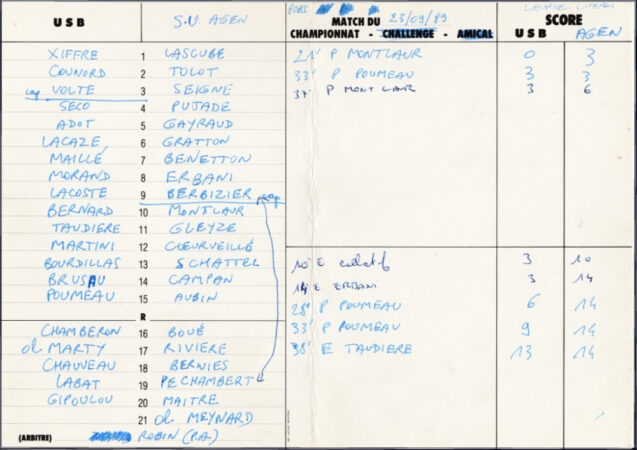 USB S.U. AGEN
XIFFRE 1 LASCUBE
COUNORD 2 TOLOT
cap VOLTE 3 SEIGNE
SECO 4 PUJADE
ADOT 5 GAYRAUD
LACAZE 6 GRATTON
MAILLÉ 7 BENETTON
MORAND 8 ERBANI
LACOSTE 9 BERBIZIER cap
BERNARD 10 MONTLAUR
TAUDIERE 11 GLEYZE
MARTINI 12 COEURVEILLÉ
BOURDILLAS 13 SCHATTEL
BRUSAU 14 CAMPAN
POUMEAU 15 AUBIN
R
CHAMBERON 16 BOUÉ
MARTY 17 RIVIERE
CHAUVEAU 18 BERNIES
LABAT 19 PECHAMBERT
GIPOULOU 20 MAITRE
21 MEYNARD
(ARBITRE) ROBIN (P.A.)
MATCH DU 23/09/89 SCORE
CHAMPIONNAT - CHALLENGE - AMICAL USB AGEN
21' P MONTLAUR 0 3
33' P POUMEAU 3 3
37' P MONTLAUR 3 6
10' E collectif 3 10
14' E ERBANI 3 14
28' P POUMEAU 6 14
33' P POUMEAU 9 14
38' E TAUDIERE 13 14